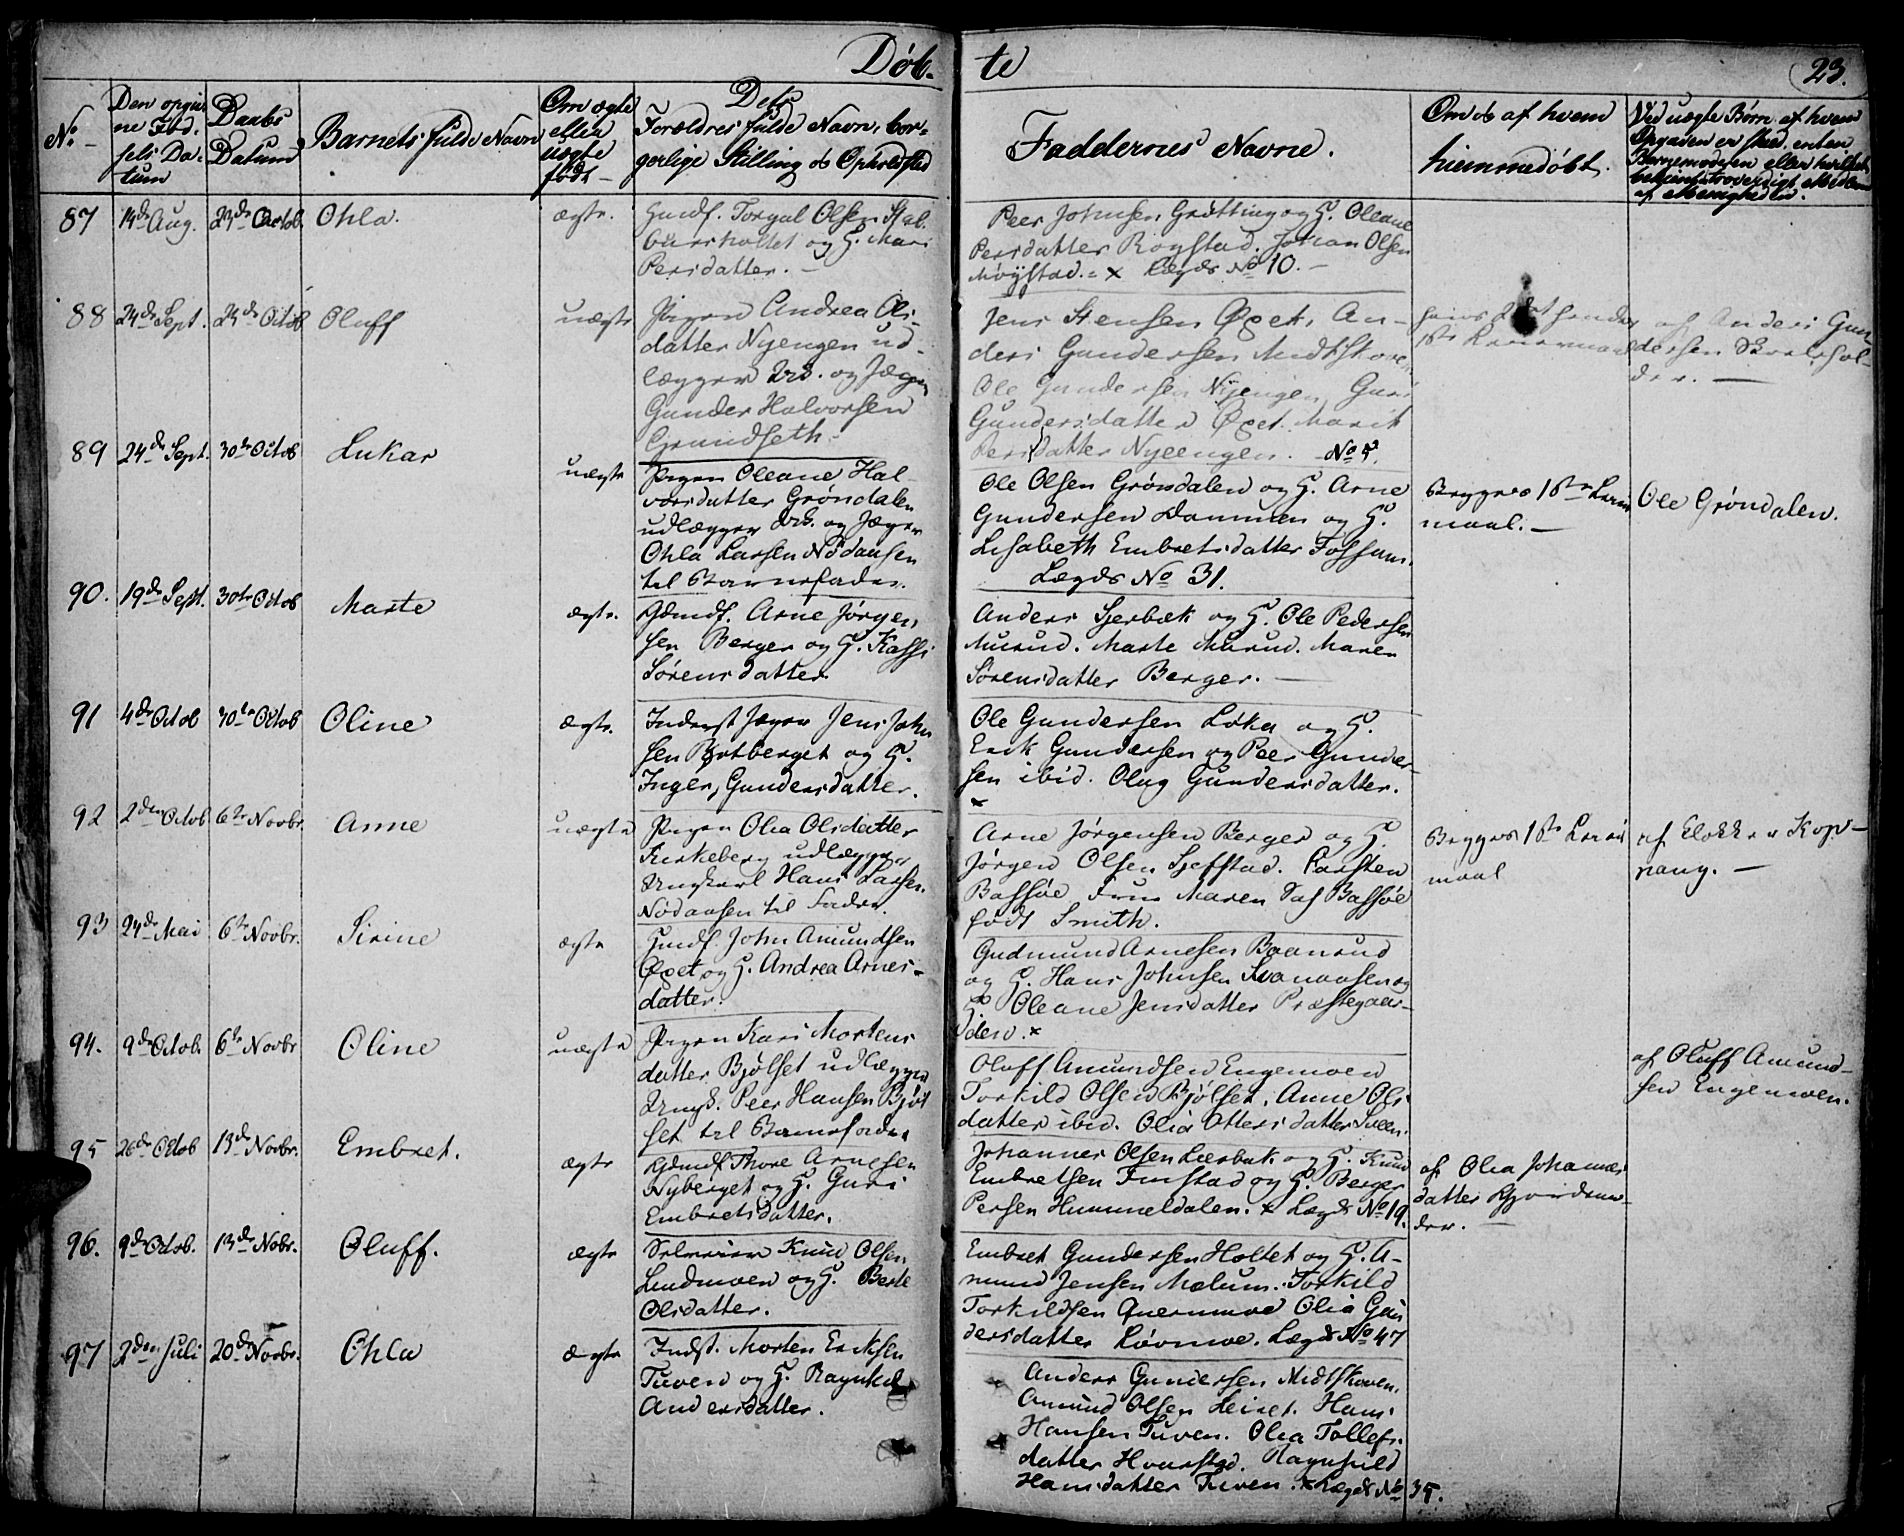 Døb- te
23.
No
Den opgiv-
ne Fød-
sels Da-
tum
Daabs
Datum
Barnets fulde Navn
Om ægte
eller
uægte
født
Dets
Forældres fulde Navn, bor-
gerlige Stilling og Opholdssted
Faddernes Navne.
Om og af hvem
hiemmedøbt.
Ved uægte Børn af hvem
Opgaven er skeed, enten
Barnemoderen eller
af Menigheden.
87 14de Aug. 23de Octob. Ohla. ægte.
Gmdf. Torgal Olsen Stal-
buurholtet og H. Mari
Persdatter. —
Peer Johnsen Grøtting og H. Oleane
Persdatter Rogstad. Johan Olsen
Møystad. = x Lægds No 10. —
88 24de Sept. 23de Octob Oluff uægte
Pigen Andrea Ols-
datter Nyengen ud-
lægger og Jæger
Gunder Halvorsen
Grundseth.
Jens Stensen Øxet, An-
ders Gundersen Midtskoven
Ole Gundersen Nyengen, Guri
Gundersdatter Øxet. Marit
Persdatter Nyeengen. No 5.
af Anders Gun-
dersen
der. —
89 24de Sept. 30te Octob Lukas uægte
Pigen Oleane Hal-
vorsdatter Grøndalen
udlægger og Jæger
Ohla Larsen Nødaasen
til Barnefader.
Ole Olsen Grøndalen og H. Arne
Gundersen Dammen og H.
Lisabeth Embretsdatter Fossum.
Lægds No 31.
Begges 1ste Leier-
maal. —
Ole Grøndalen.
90. 19de Sept. 30te Octob Marte ægte.
Gdmdf. Arne Jørgen-
sen Berger og H. Kassi
Sørensdatter.
Anders Sjerbæk og H. Ole Pedersen
Murud. Marte Murud. Maren
Sørensdatter Berger. —
91 4de Octob 30te Octob Oline ægte.
Inderst Jæger Jens John
sen Botberget og H.
Inger, Gundersdatter.
Ole Gundersen Løka og H.
Erik Gundersen og Peer Gunder-
sen ibid. Olug Gundersdatter.
x
92 2den Octob 6te Novbr. Anne uægte
Pigen Olea Olsdatter
Kirkeberg udlægger
Ungkarl Hans Larsen
Nødaasen til Fader.
Arne Jørgensen Berger og H.
Jørgen Olsen Sjefstad. Carsten
Bassøe Frue Maren Bassøe
født Smith.
Begges 1ste Leier
maal
af Klokker Kop-
pang. —
93 24de Mai 6te Novbr. Sirine ægte
Gmdf. John Amundsen
Øxet og H. Andrea Arnes-
datter.
Gudmund Arnesen Baanrud
og H. Hans Johnsen Svanaasen og
H. Oleane Jensdatter Præstegaar-
den. x
94. 9de Octob. 6te Novbr Oline uægte
Pigen Kari Mortens
datter Bjølset udlægger
Ungk. Peer Hansen Bjøl
set til Barnefader
Oluff Amundsen Engemoen
Torkild Olsen Bjølset, Anne Ols
datter ibid. Olia Ottersdatter Sveen.
af Oluff Amund-
sen Engemoen.
95 26de Octob 13de Novbr. Embret. ægte
Gdmdf. Thore Arnesen
Nyberget og H. Guri
Embretsdatter.
Johannes Olsen Lærbæk og H. Knud
Embretsen Finstad og H. Berger
Persen Hummeldalen. x Lægds No 19.
af Olea Johannes
datter
der. —
96. 9de Octob. 13de Nobr. Oluff. ægte
Selveier Knud Olsen
Lindmoen og H. Berte
Olsdatter.
Embret Gundersen Holtet og H. A-
mund Jensen Mælum. Torkild
Torkildsen Quernmoe Olia Gun
dersdatter Løvmoe. Lægds No 47
97 2den Juli 20de Novbr. Ohla ægte
Indst. Morten Ericksen
Tuven og H. Ragnhild
Andersdatter.
Anders Gundersen Midtskoven.
Amund Olsen Leiret. Hans
Hansen Tuven. Olea Tollefs-
datter Hvarstad. Ragnhild
Hansdatter Tuven. x Lægds No 35.